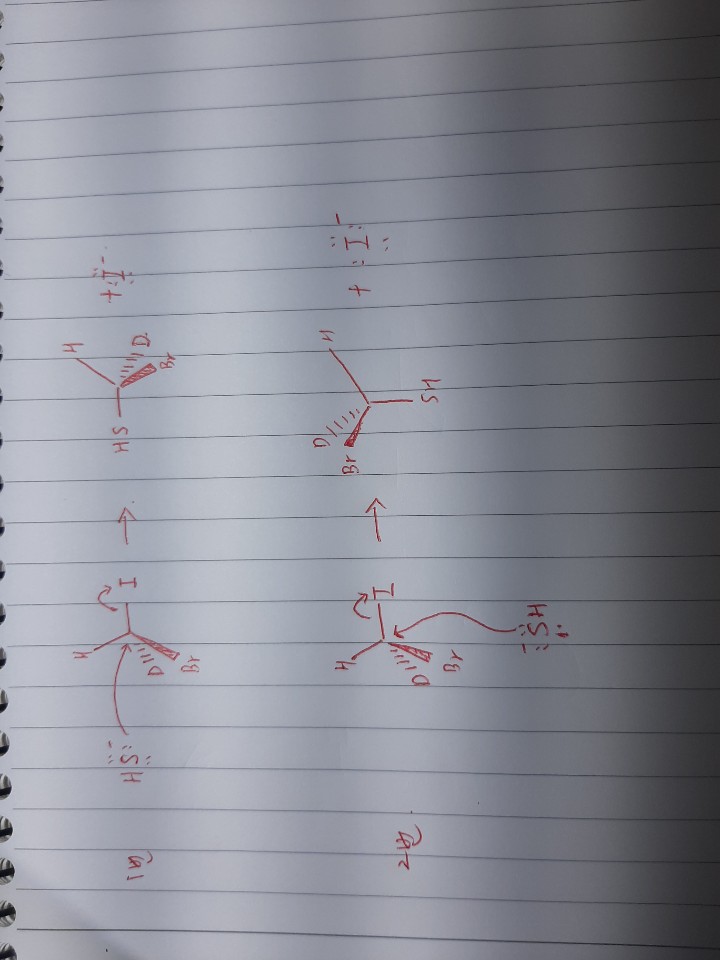 H H
HS:⁻ I → HS D. + :I:⁻
D Br
Br
H D H
I → Br + :I:⁻
D SH
Br
⁻:SH